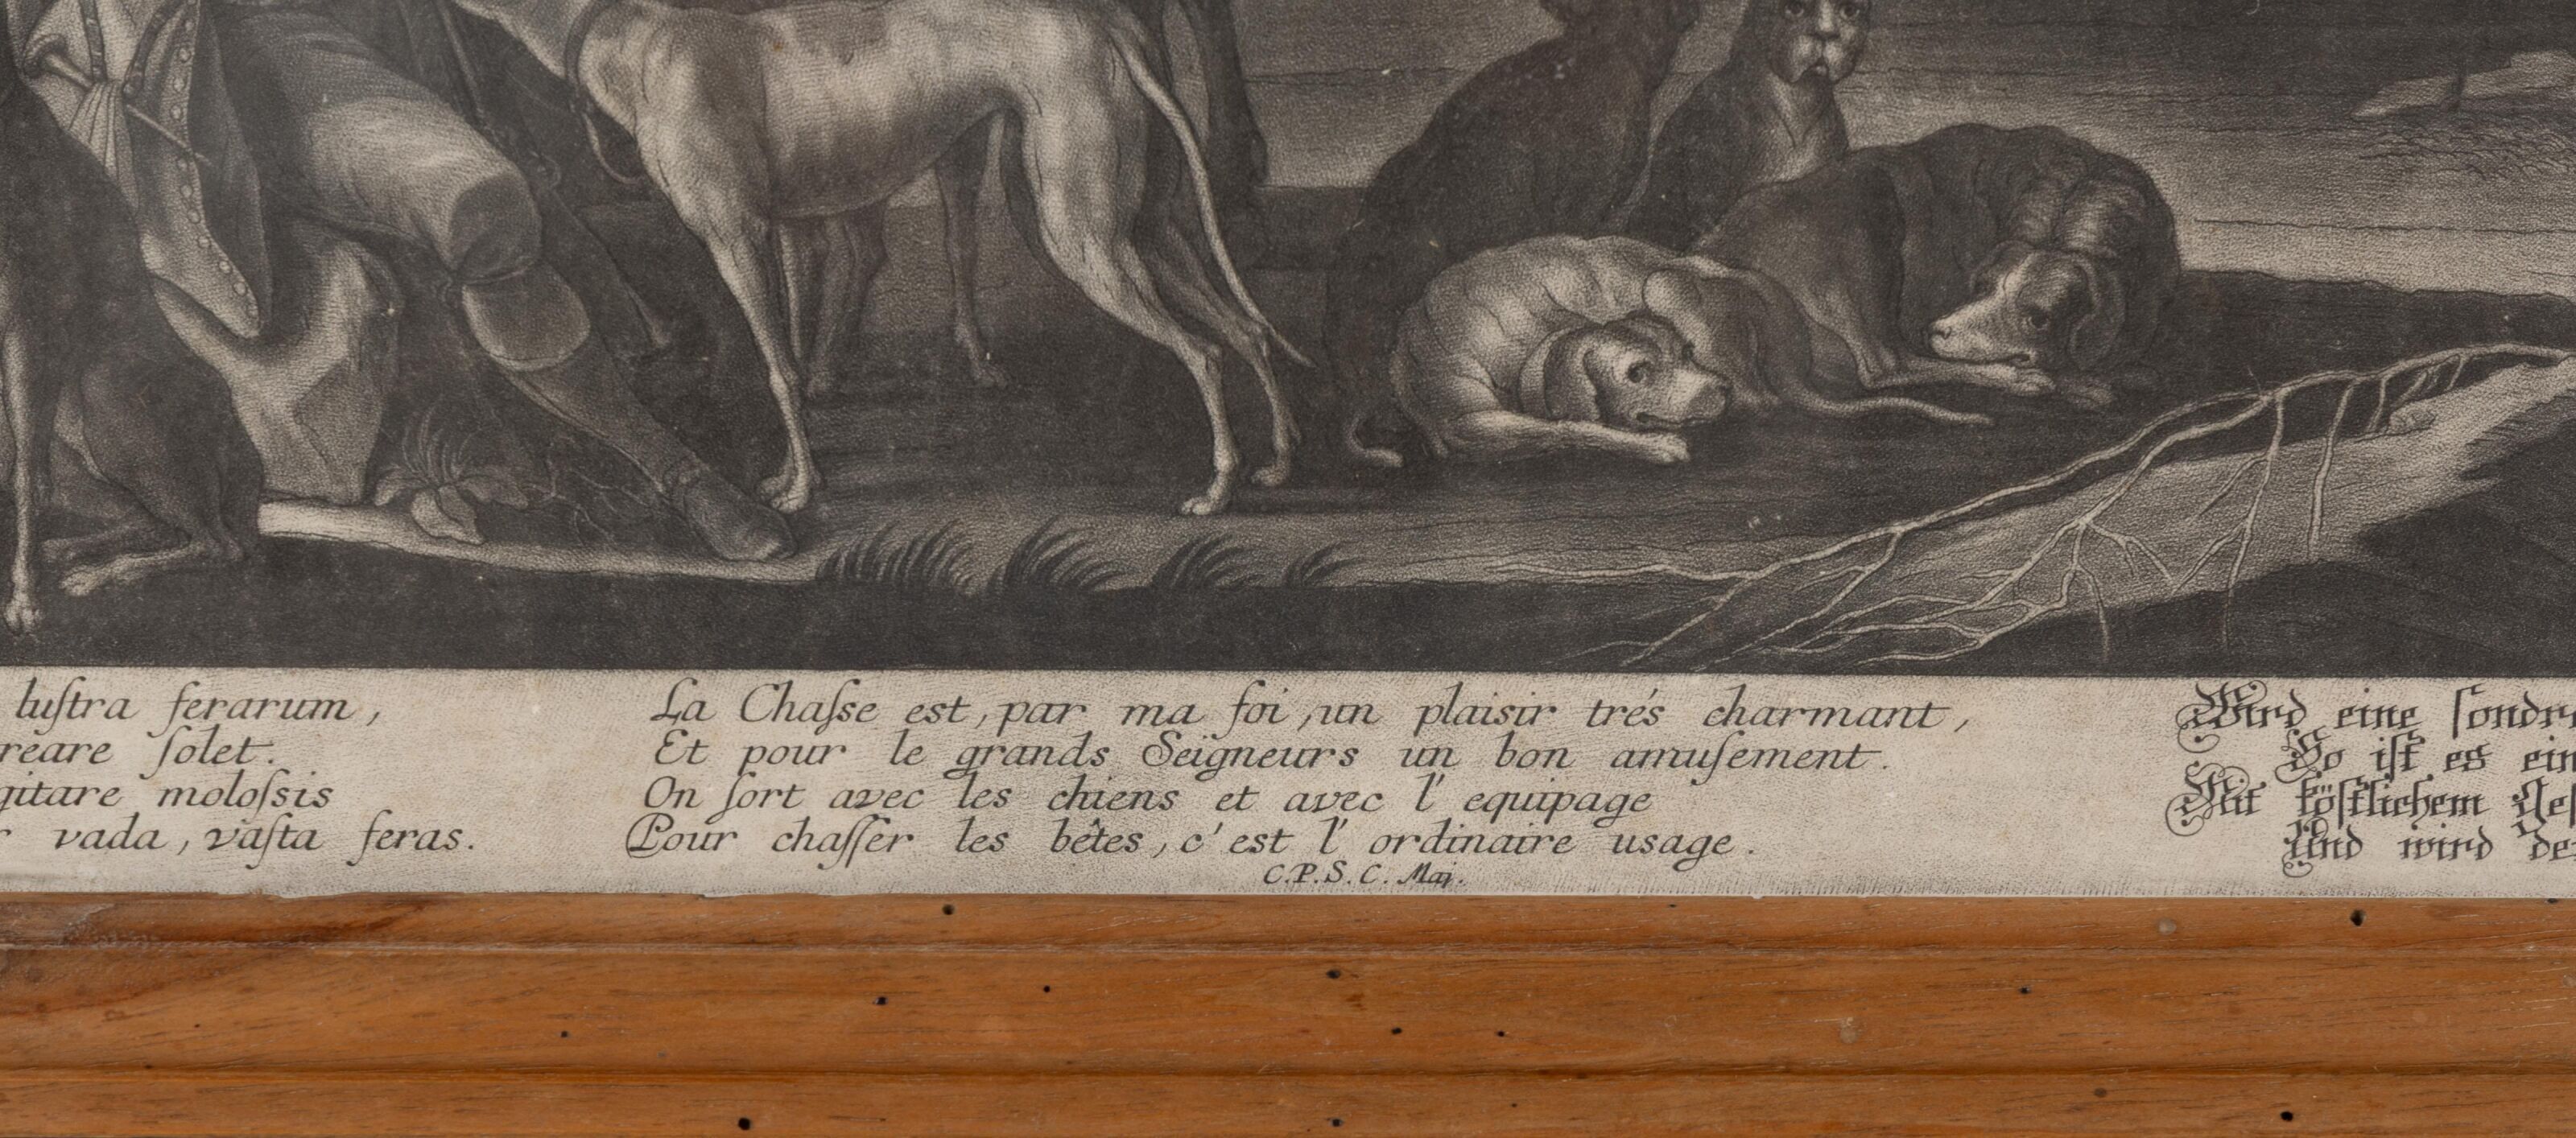 luſtra ferarum,
reare ſolet.
gitare moloſsis
vada, vaſta feras.
La Chaſse est, par ma foi, un plaisir trés charmant,
Et pour le grands Seigneurs un bon amuſement.
On ſort avec les chiens et avec l' equipage
Pour chaſſer les bêtes, c'est l' ordinaire usage.
C.P.S.C. Maj.
Wird eine ſondr
So iſt es ein
Mit köſtlichem Geſ
Und wird de